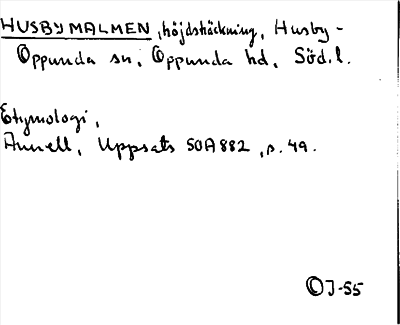 HUSBYMALMEN, höjdsträckning, Husby-
Oppunda sn, Oppunda hd, Söd.l.
Etymologi,
Annell, Uppsats SOA882, s. 49.
OJ-55